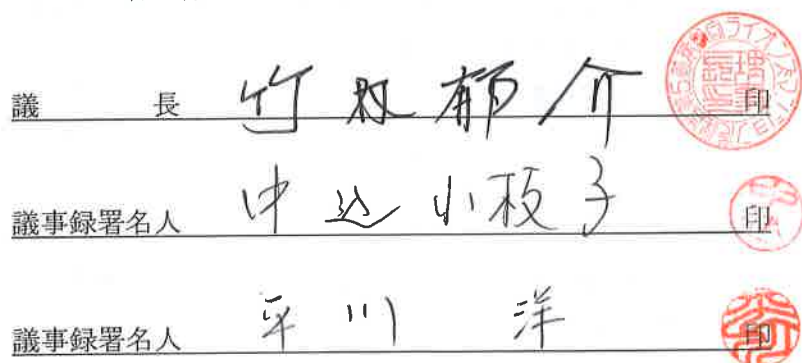 議 長 竹牧郁介 印
議事録署名人 中込小枝子 印
議事録署名人 平川 洋 印